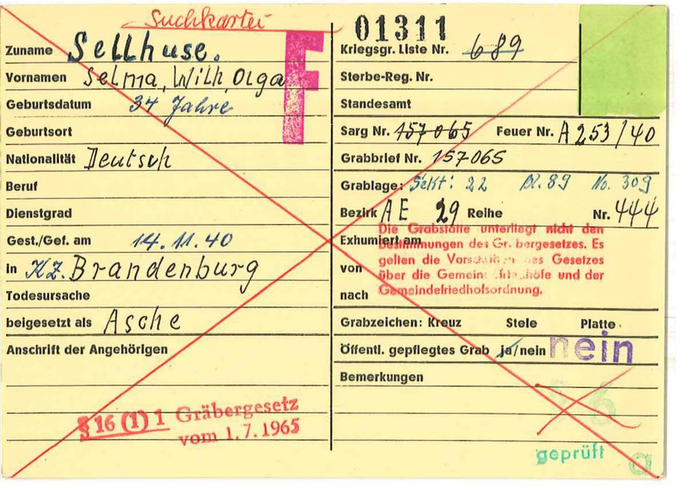 Suchkartei
Zuname Sellhuse.
Vornamen Selma, Wilh, Olga
Geburtsdatum 34 Jahre
Geburtsort
Nationalität Deutsch
Beruf
Dienstgrad
Gest./Gef. am 14.11.40
in KZ. Brandenburg
Todesursache
beigesetzt als Asche
Anschrift der Angehörigen
§ 16 (1) 1 Gräbergesetz
vom 1.7.1965
F
01311
Kriegsgr. Liste Nr. 689
Sterbe-Reg. Nr.
Standesamt
Sarg Nr. 157065 Feuer Nr. A 253/40
Grabbrief Nr. 157065
Grablage: Sekt: 22 Bl. 89 No. 309
Bezirk AE 29 Reihe Nr. 444
Die Grabstätte unterliegt nicht den
Exhumiert am
Bestimmungen des Gräbergesetzes. Es
gelten die Vorschriften des Gesetzes
von
über die Gemeindefriedhöfe und der
nach
Gemeindefriedhofsordnung.
Grabzeichen: Kreuz Stele Platte
Öffentl. gepflegtes Grab ja/nein nein
Bemerkungen
geprüft